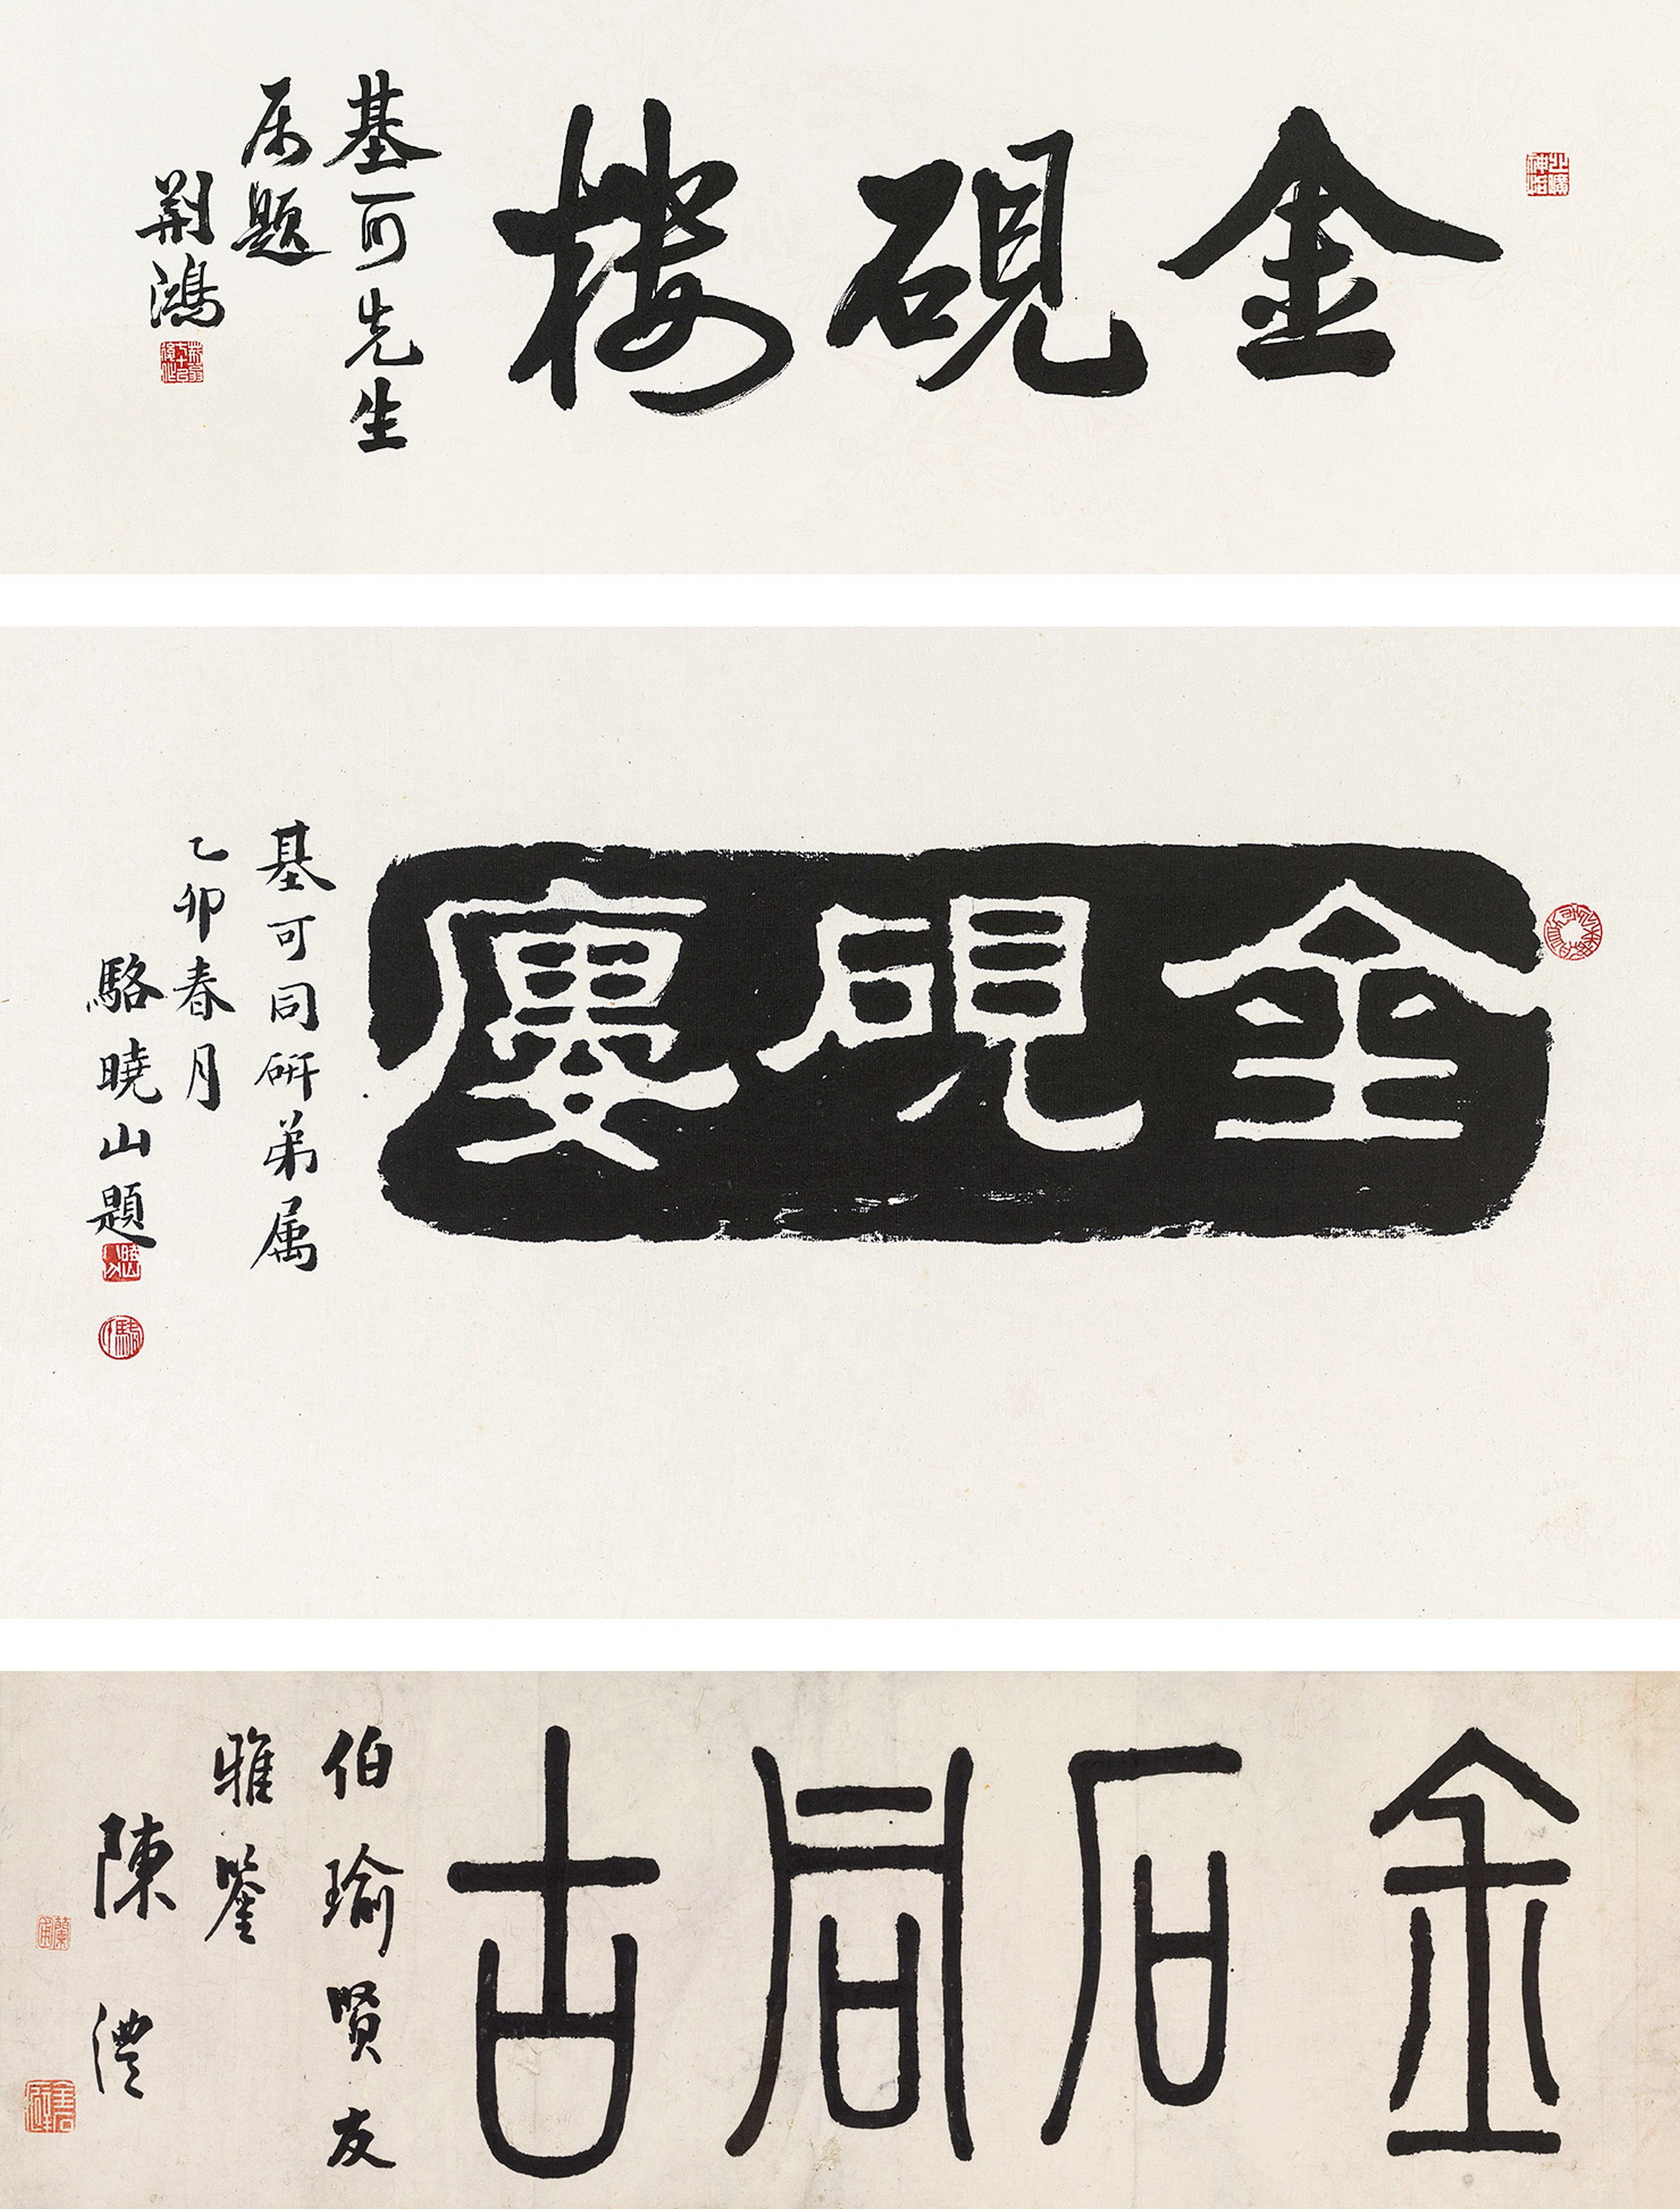 金硯楼
基可先生
属題
荆鴻
金硯廔
基可同研弟属
乙卯春月
駱曉山題
金石同古
伯瑜賢友
雅鑒
陳澧